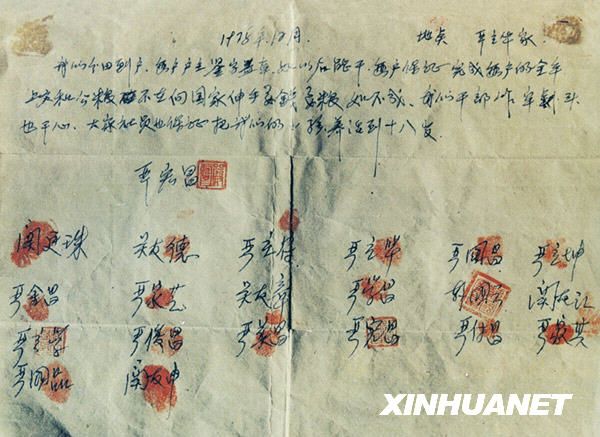 1978年12月. 地点 严立华家.
我们分田到户, 每户户主签字盖章, 如以后能干, 每户保证完成每户的全年
上交和公粮, 不在向国家伸手要钱要粮, 如不成, 我们干部作牢刹头
也干心, 大家社员也保证把我们的小孩养活到十八岁.
严宏昌
关廷珠 关友德 严立符 严立华 严国昌 严立坤
严金昌 严家芝 关友章 严学昌 韩国云 关友江
严立学 严俊昌 严美昌 严宏昌 严付昌 严家其
严国品 关友申
XINHUANET